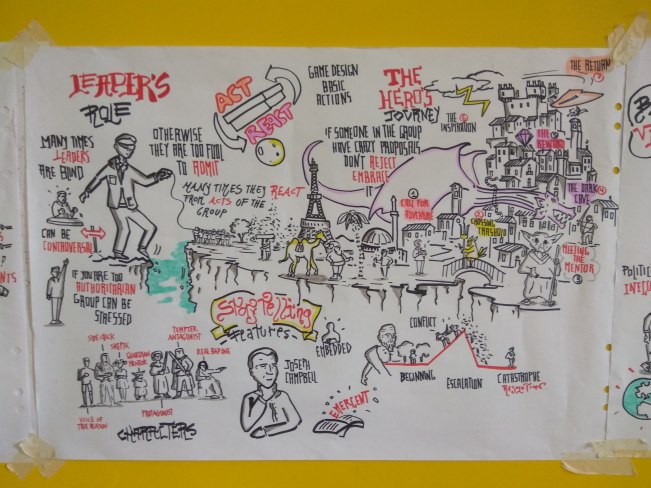 LEADER'S
ROLE
MANY TIMES
LEADERS
ARE BLIND
CAN BE
CONTROVERSIAL
OTHERWISE
THEY ARE TOO FULL
TO ADMIT
MANY TIMES THEY REACT
FROM ACTS OF THE
GROUP
IF YOU ARE TOO
AUTHORITARIAN
GROUP CAN BE
STRESSED
ACT
REACT
GAME DESIGN
BASIC
ACTIONS
THE
HERO'S
JOURNEY
IF SOMEONE IN THE GROUP
HAVE CRAZY PROPOSALS
DON'T REJECT
EMBRACE
IT
THE
INSPIRATION
THE RETURN
THE REWARD
THE DARK
CAVE
1
CALL FOR
ADVENTURE
2
CROSSING
TRASHOLD
MEETING
THE
MENTOR
3
StoryTelling
Features
EMBEDDED
EMERGENT
JOSEPH
CAMPBELL
SIDE KICK
SKEPTIC
GUARDIAN
MENTOR
TEMPTER
ANTAGONIST
REAL BAD ONE
VOICE OF
TRUE REASON
PROTAGONIST
CHARACTERS
CONFLICT
BEGINNING
ESCALATION
CATASTROPHE
NTS
POLITIC